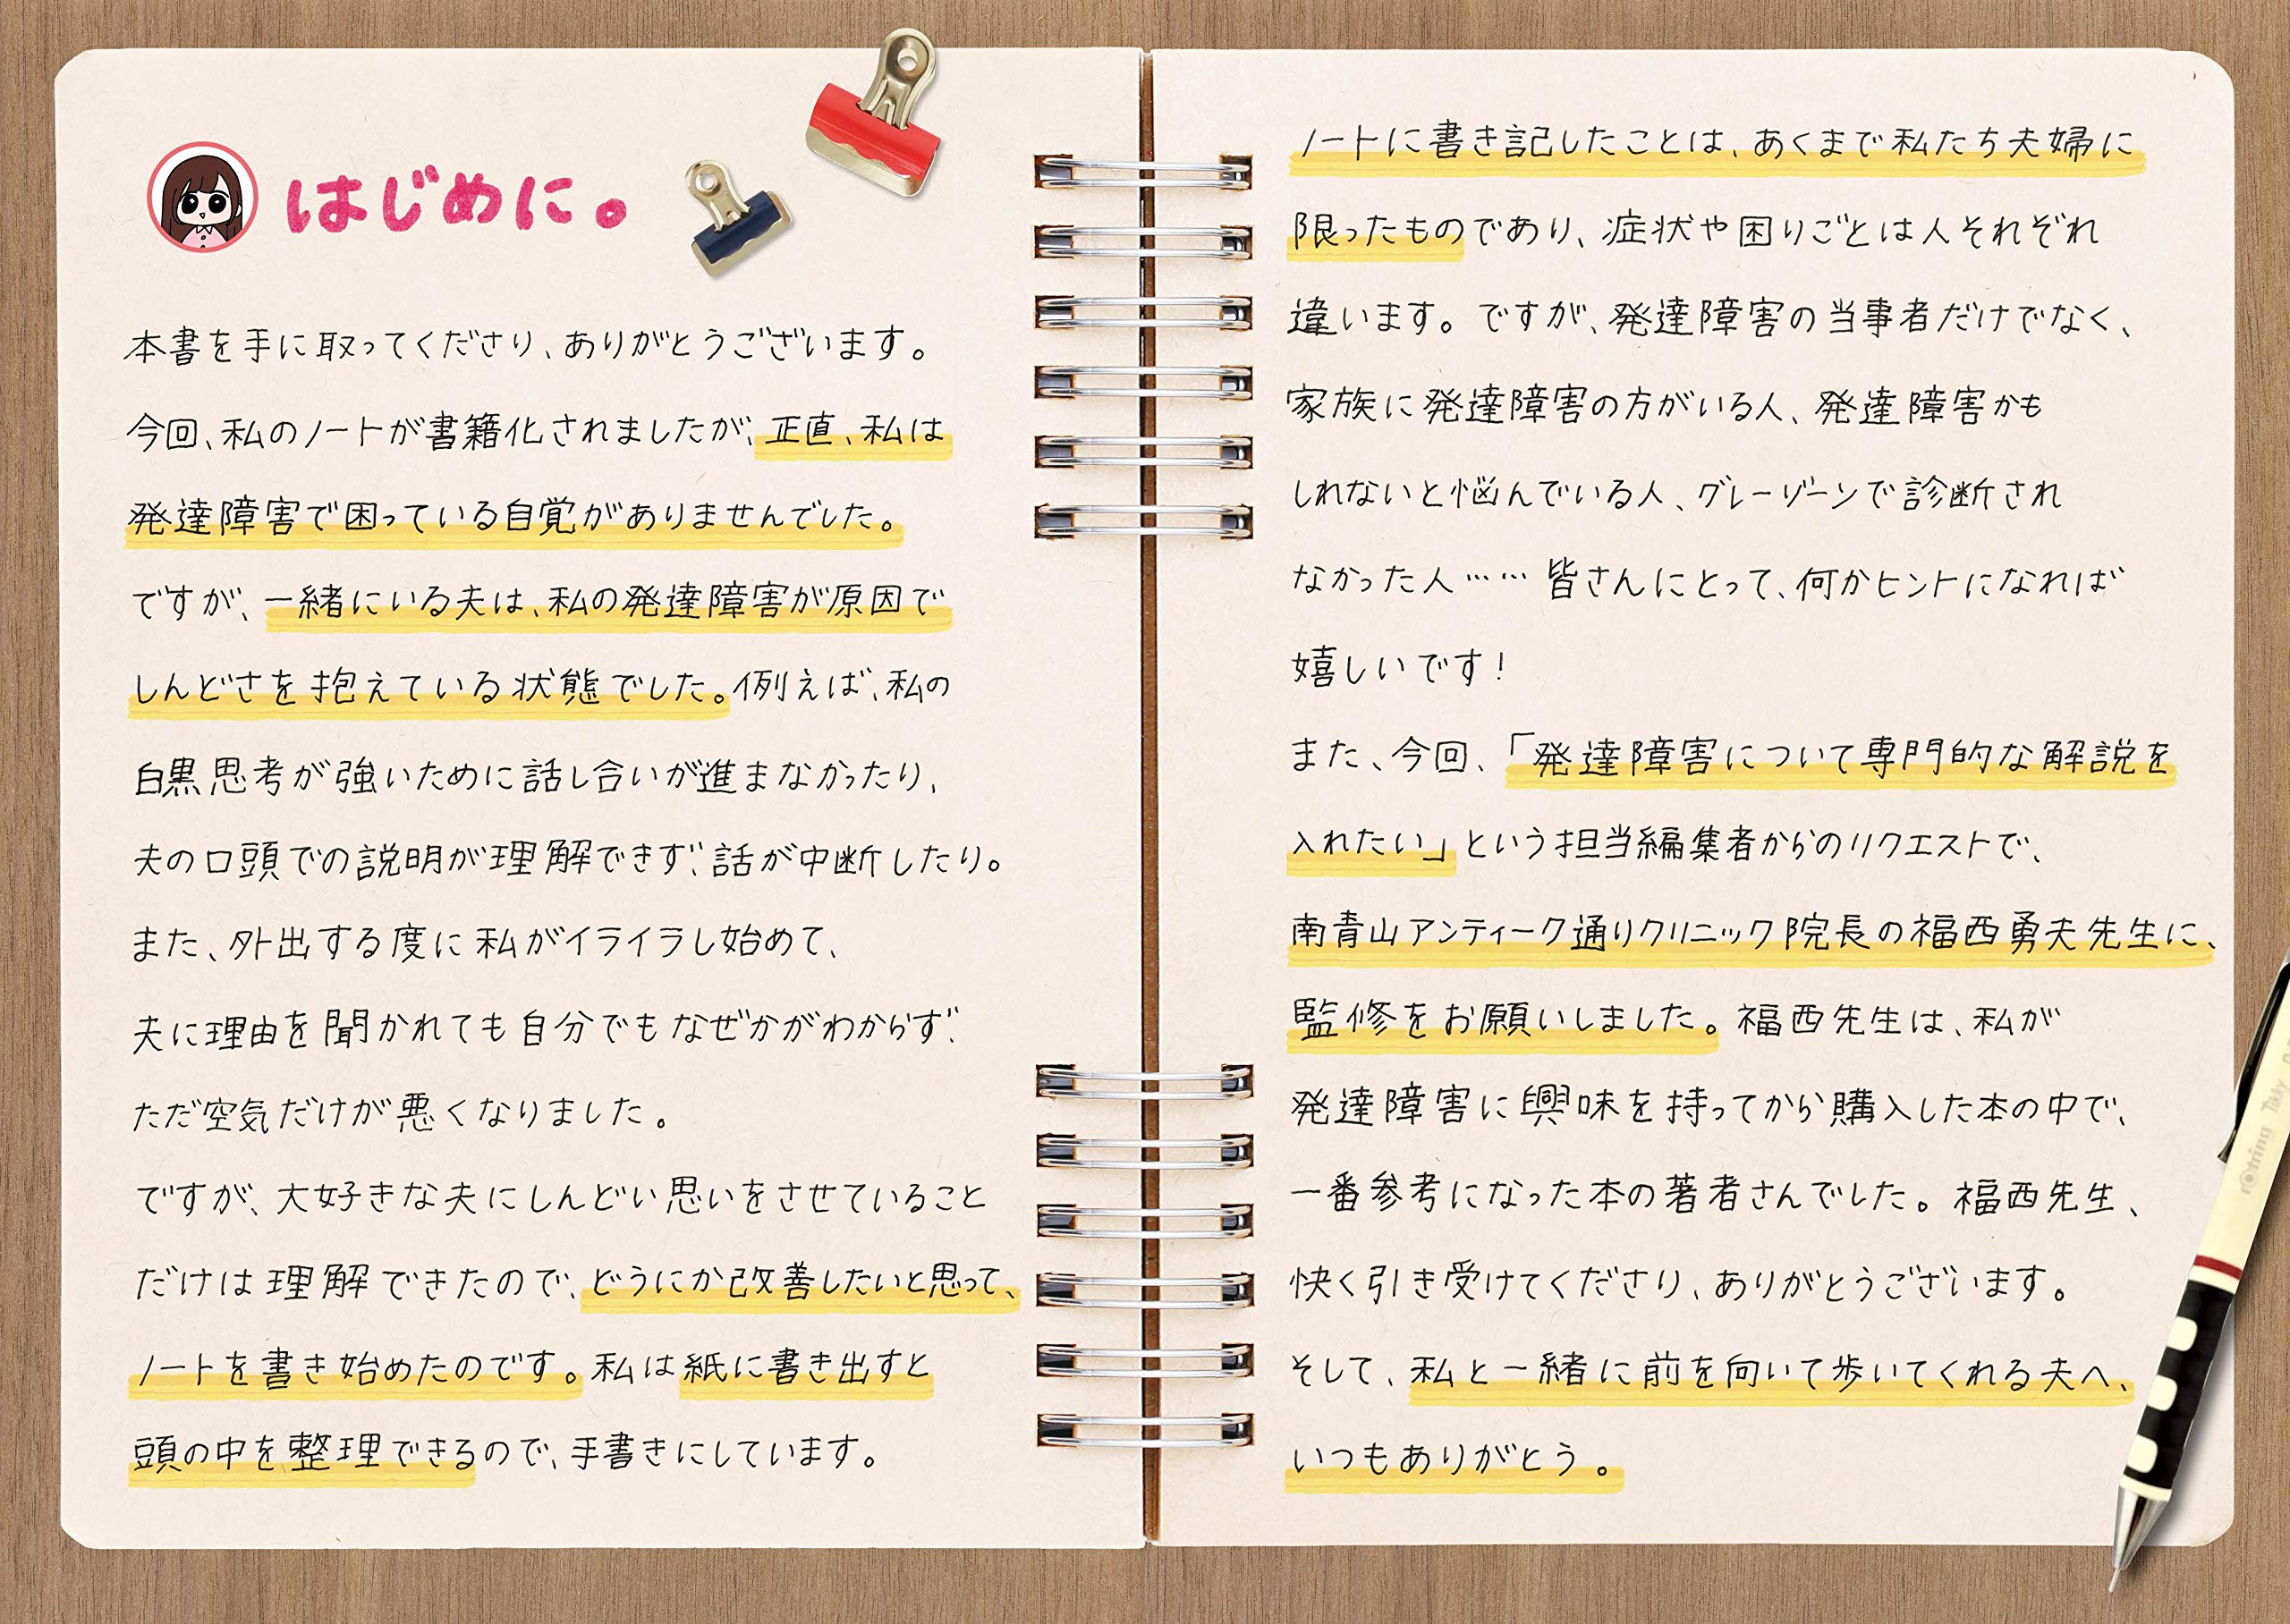 はじめに。
本書を手に取ってくださり、ありがとうございます。
今回、私のノートが書籍化されましたが、正直、私は
発達障害で困っている自覚がありませんでした。
ですが、一緒にいる夫は、私の発達障害が原因で
しんどさを抱えている状態でした。例えば、私の
白黒思考が強いために話し合いが進まなかったり、
夫の口頭での説明が理解できず、話が中断したり。
また、外出する度に私がイライラし始めて、
夫に理由を聞かれても自分でもなぜかがわからず、
ただ空気だけが悪くなりました。
ですが、大好きな夫にしんどい思いをさせていること
だけは理解できたので、どうにか改善したいと思って、
ノートを書き始めたのです。私は紙に書き出すと
頭の中を整理できるので、手書きにしています。
ノートに書き記したことは、あくまで私たち夫婦に
限ったものであり、症状や困りごとは人それぞれ
違います。ですが、発達障害の当事者だけでなく、
家族に発達障害の方がいる人、発達障害かも
しれないと悩んでいる人、グレーゾーンで診断され
なかった人……皆さんにとって、何かヒントになれば
嬉しいです!
また、今回、「発達障害について専門的な解説を
入れたい」という担当編集者からのリクエストで、
南青山アンティーク通りクリニック院長の福西勇夫先生に、
監修をお願いしました。福西先生は、私が
発達障害に興味を持ってから購入した本の中で、
一番参考になった本の著者さんでした。福西先生、
快く引き受けてくださり、ありがとうございます。
そして、私と一緒に前を向いて歩いてくれる夫へ、
いつもありがとう。
rotring Tikky